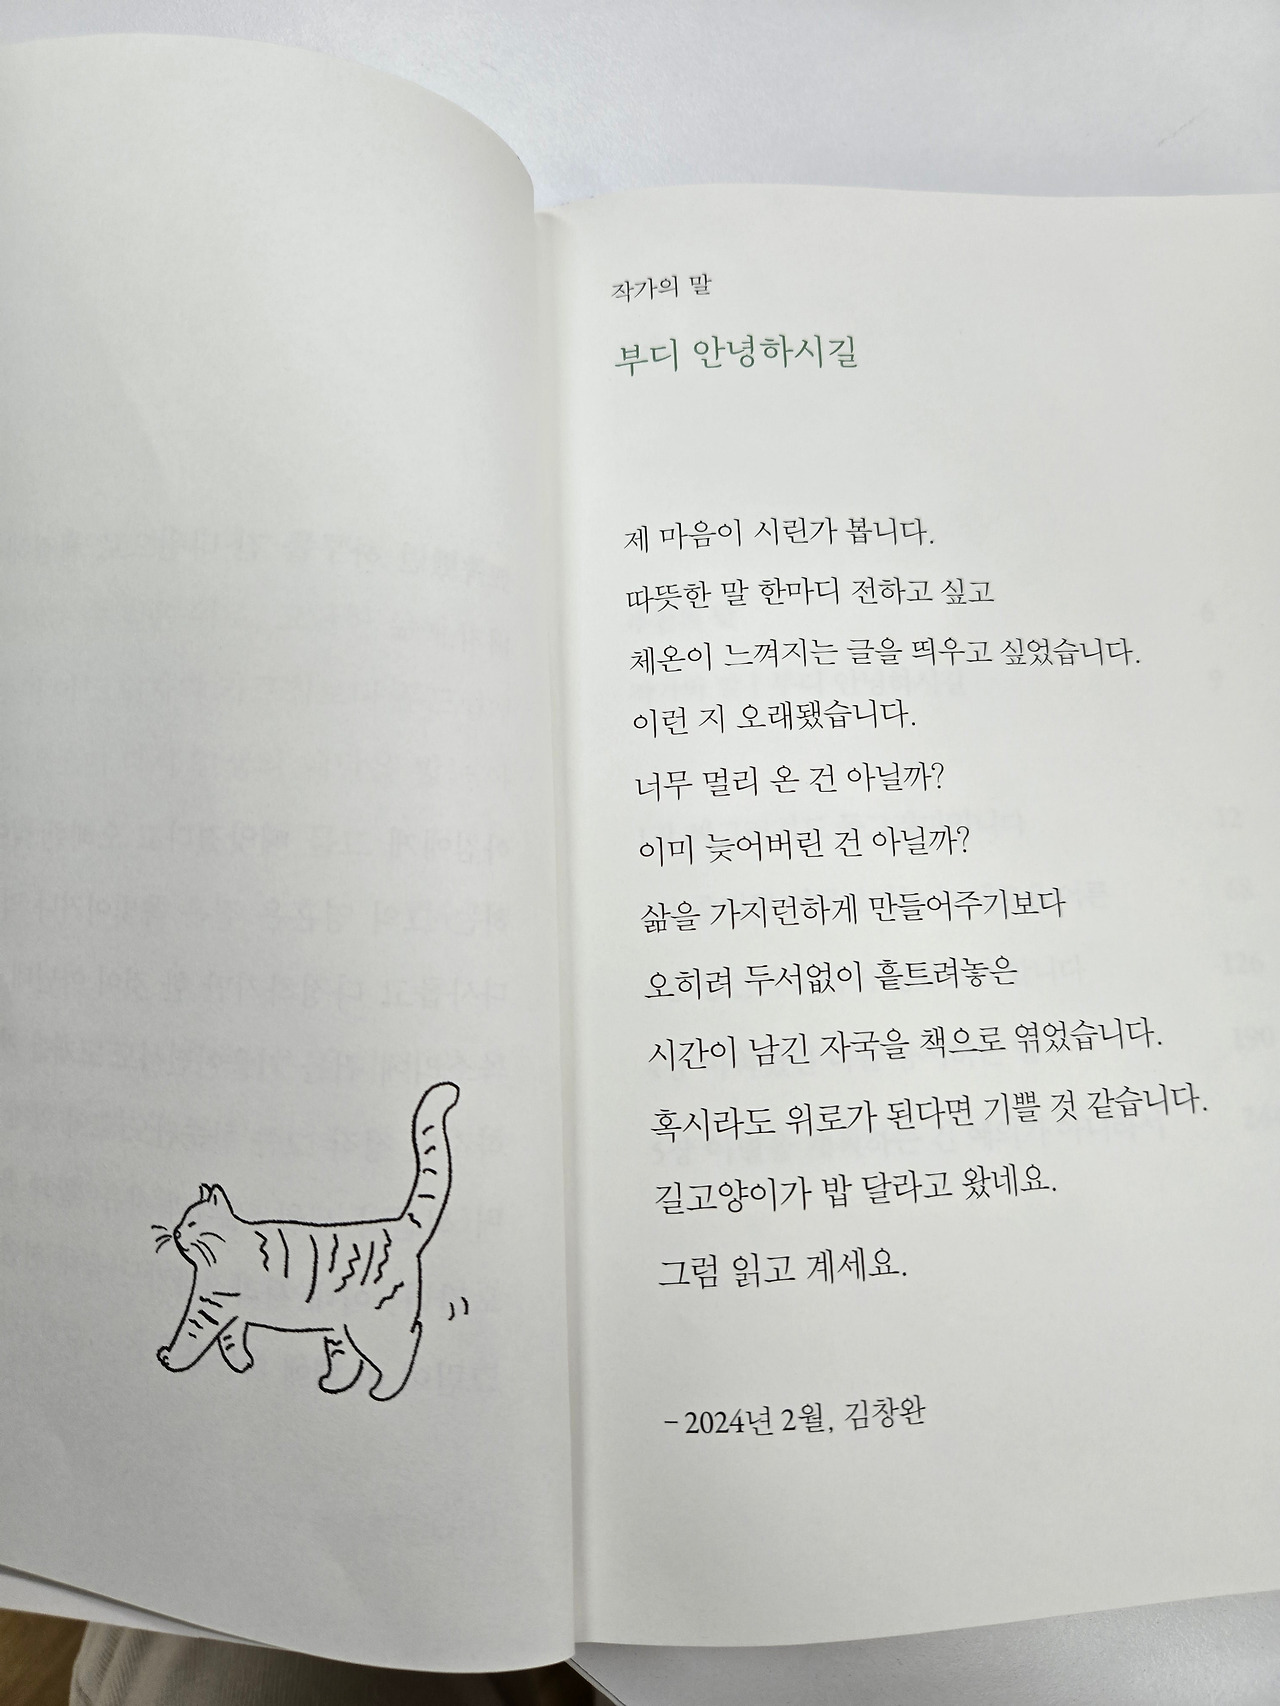 작가의 말
부디 안녕하시길
제 마음이 시린가 봅니다.
따뜻한 말 한마디 전하고 싶고
체온이 느껴지는 글을 띄우고 싶었습니다.
이런 지 오래됐습니다.
너무 멀리 온 건 아닐까?
이미 늦어버린 건 아닐까?
삶을 가지런하게 만들어주기보다
오히려 두서없이 흩트려놓은
시간이 남긴 자국을 책으로 엮었습니다.
혹시라도 위로가 된다면 기쁠 것 같습니다.
길고양이가 밥 달라고 왔네요.
그럼 읽고 계세요.
– 2024년 2월, 김창완